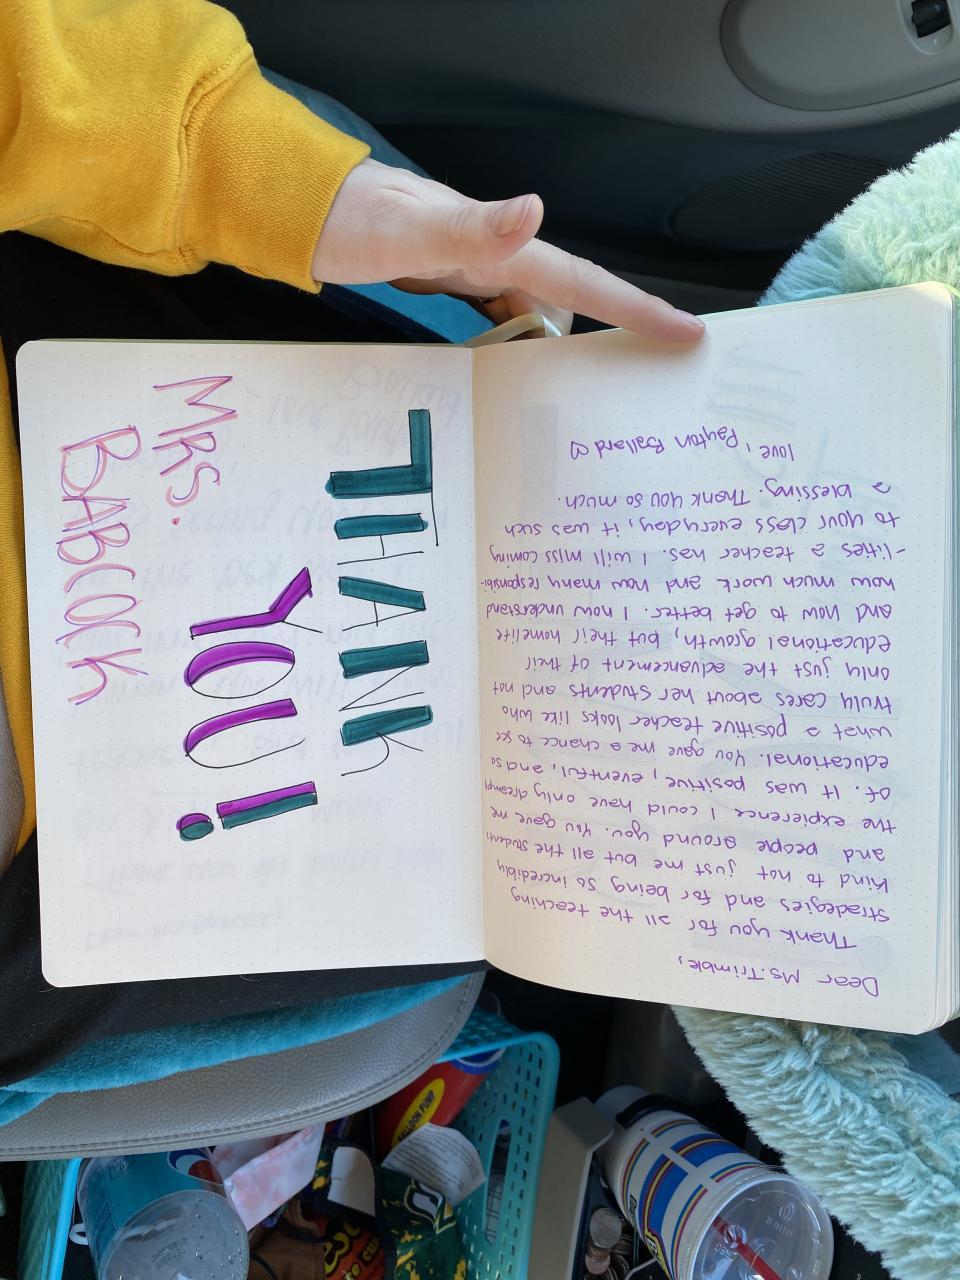 THANK
YOU!
MRS.
BABCOCK
Dear Ms. Trimble,
Thank you for all the teaching
stradegies and for being so incredibly
kind to not just me but all the students
and people around you. You gave me
the expierence I could have only dreampt
of. It was positive, eventful, and so
educational. You gave me a chance to see
what a positive teacher looks like who
truly cares about her students and not
only just the advancement of their
educational growth, but their homelife
and how to get better. I now understand
how much work and how many responsibi-
-lities a teacher has. I will miss coming
to your class everyday, it was such
a blessing. Thank you so much.
love, Payton Ballard
BALLOON PUMP